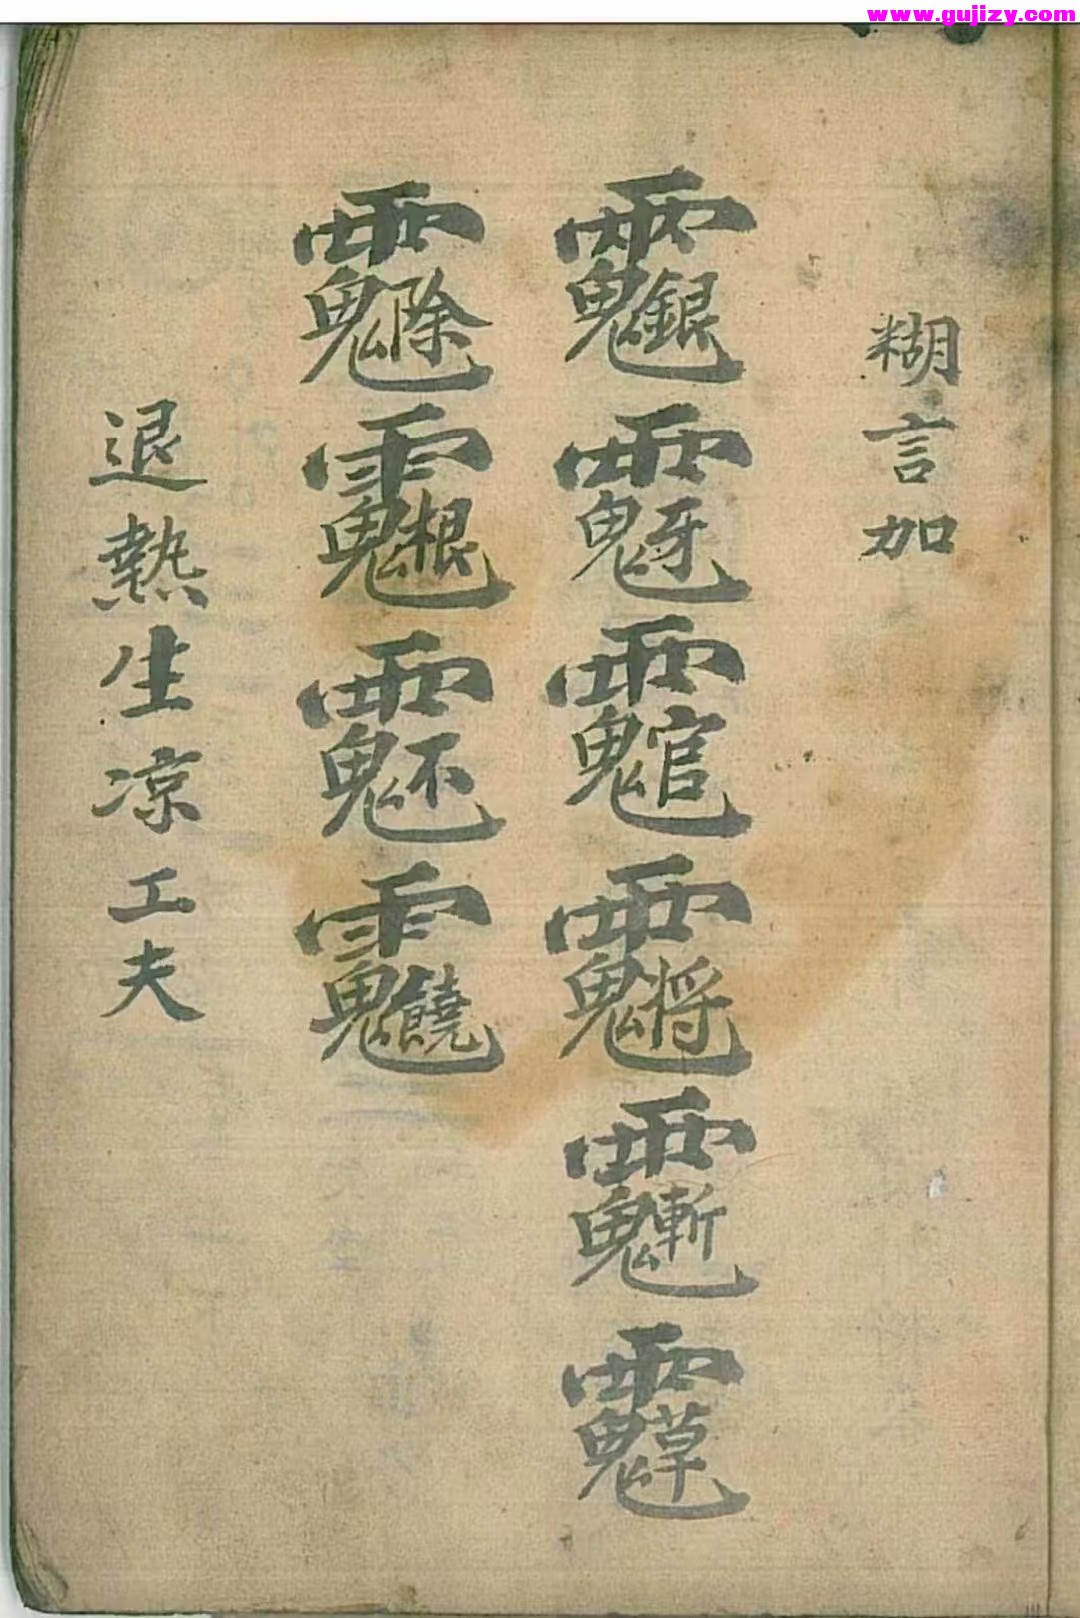 www.gujizy.com
糊言加
⿱雨⿺鬼銀⿱雨⿺鬼牙⿱雨⿺鬼官⿱雨⿺鬼将⿱雨⿺鬼斬⿱雨⿺鬼草
⿱雨⿺鬼除⿱雨⿺鬼根⿱雨⿺鬼不⿱雨⿺鬼饒
退熱生涼工夫